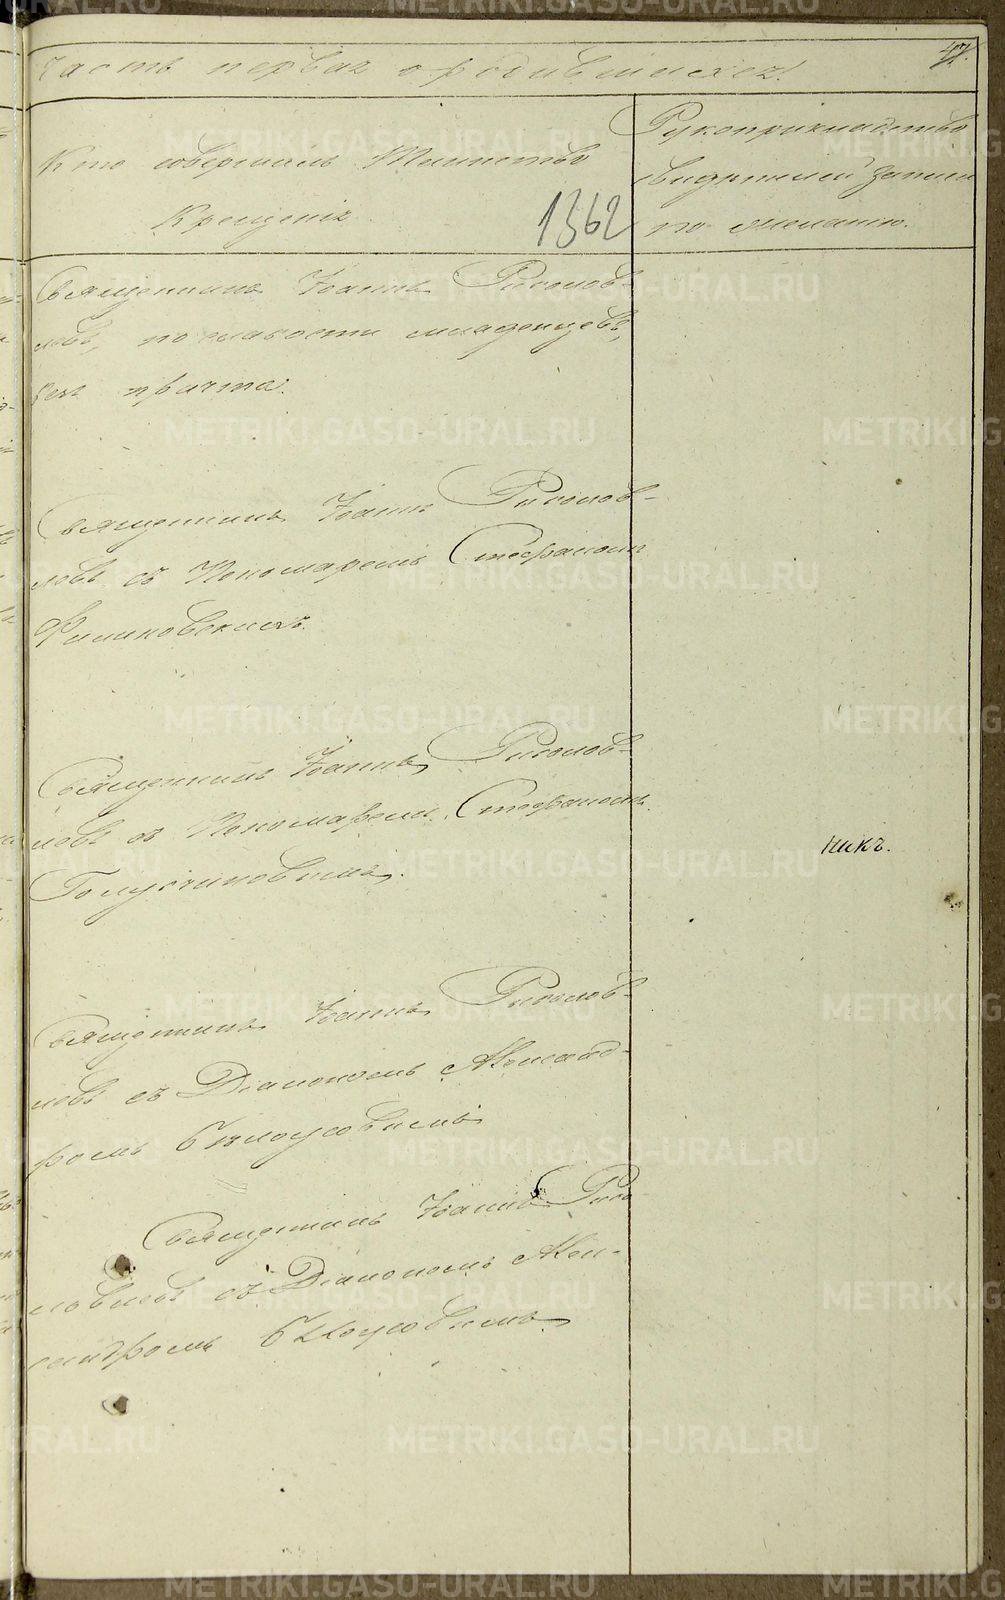 часть первая о родившихся.
47.
Кто совершалъ Таинство
Крещенія.
1362
Рукоприкладство
свидѣтелей записи
по желанію.
Священникъ Іоаннъ
левъ, по слабости младенцевъ,
безъ причта.
Священникъ Іоаннъ
левъ съ Пономаремъ Стефаномъ
Священникъ Іоаннъ
левъ съ Пономаремъ Стефаномъ
никъ.
Священникъ Іоаннъ
левъ съ Діакономъ Алексан-
дромъ Бѣлоусовымъ
Священникъ Іоаннъ
съ Діакономъ Алек-
сандромъ Бѣлоусовымъ
METRIKI.GASO-URAL.RU